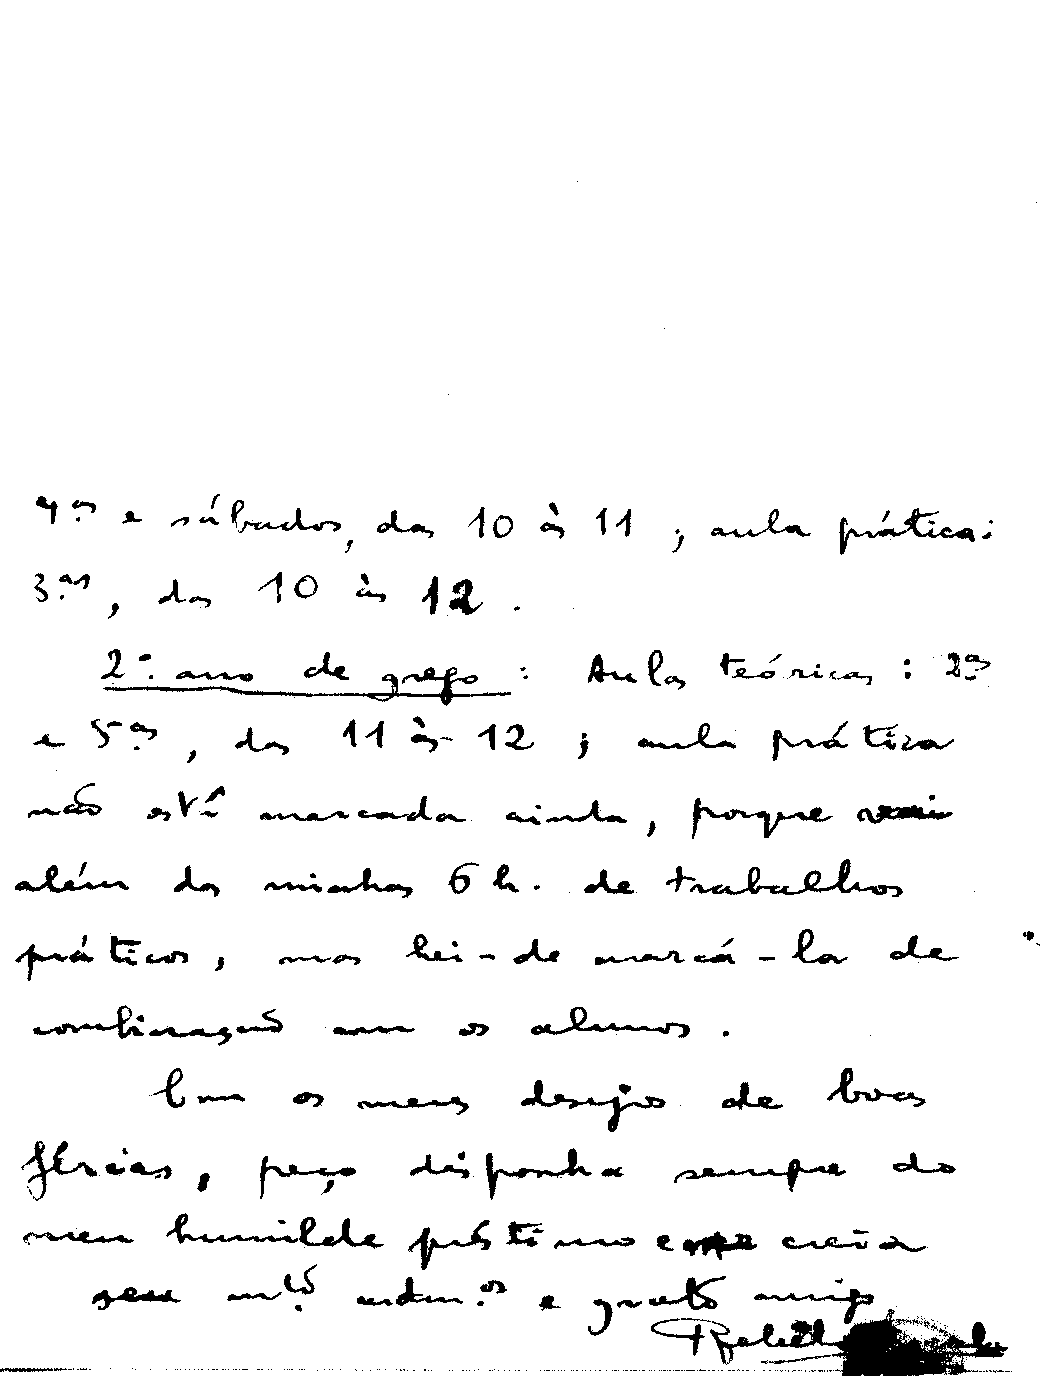 4.as e sábados, das 10 às 11 ; aula prática:
3.as, das 10 às 12 .
2.º ano de grego : Aulas teóricas : 2.as
e 5.as, das 11 às 12 ; aula prática
não está marcada ainda, porque vai
além das minhas 6 h. de trabalhos
práticos, mas hei-de marcá-la de
combinação com os alunos .
Com os meus desejos de boas
férias, peço disponha sempre do
meu humilde préstimo e me creia
seu m.to adm.or e grato amigo
Rebelo